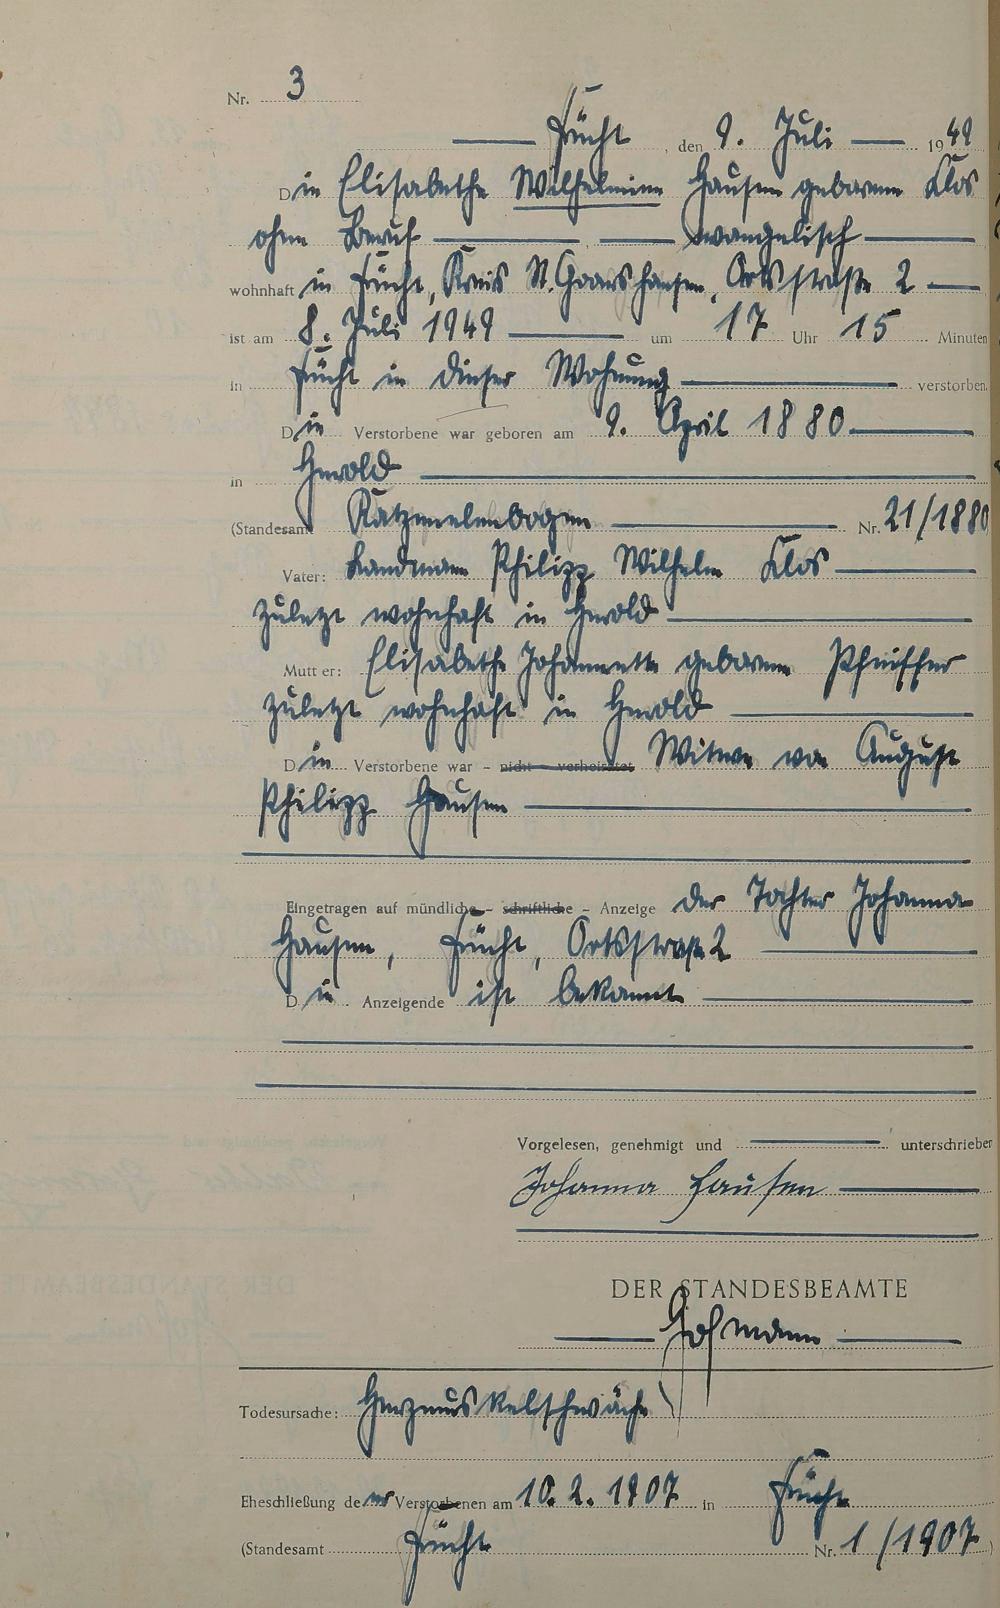 Nr. 3
Frücht, den 9. Juli 1949
Die Elisabethe Wilhelmine Hausen geborene Klos
ohne Beruf evangelisch
wohnhaft in Frücht, Kreis St. Goarshausen, Ortsstraße 2
ist am 8. Juli 1949 um 17 Uhr 15 Minuten
in Frücht in dieser Wohnung verstorben.
Die Verstorbene war geboren am 9. April 1880
in Herold
(Standesamt Katzenelnbogen Nr. 21/1880
Vater: Landmann Philipp Wilhelm Klos
zuletzt wohnhaft in Herold
Mutter: Elisabethe Johannette geborene Pfeiffer
zuletzt wohnhaft in Herold
Die Verstorbene war – nicht – verheiratet Witwe von August
Philipp Hausen
Eingetragen auf mündliche – schriftliche – Anzeige der Tochter Johanna
Hausen, Frücht, Ortsstraße 2
Die Anzeigende ist bekannt
Vorgelesen, genehmigt und unterschrieben
Johanna Hausen
DER STANDESBEAMTE
Hofmann
Todesursache: Herzmuskelschwäche
Eheschließung der Verstorbenen am 10. 2. 1907 in Frücht
(Standesamt Frücht Nr. 1/1907)